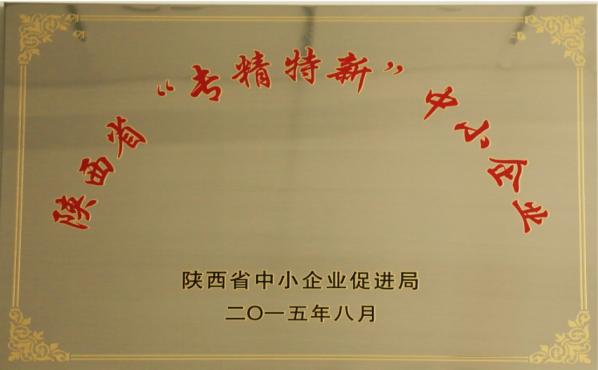 陕西省“专精特新”中小企业
陕西省中小企业促进局
二〇一五年八月